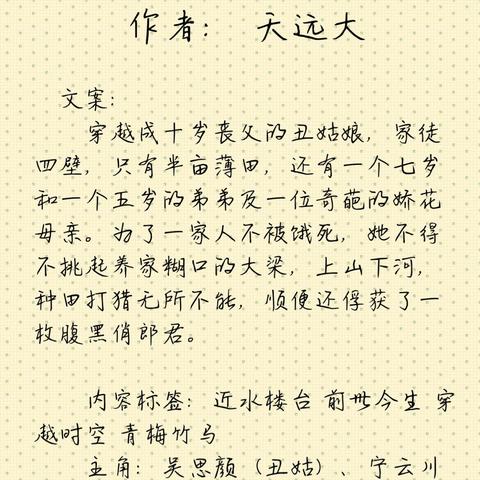 作者： 天远大
文案：
穿越成十岁丧父的丑姑娘，家徒
四壁，只有半亩薄田，还有一个七岁
和一个五岁的弟弟及一位奇葩的娇花
母亲。为了一家人不被饿死，她不得
不挑起养家糊口的大梁，上山下河，
种田打猎无所不能，顺便还俘获了一
枚腹黑俏郎君。
内容标签： 近水楼台 前世今生 穿
越时空 青梅竹马
主角： 吴思颜（丑姑）、宁云川